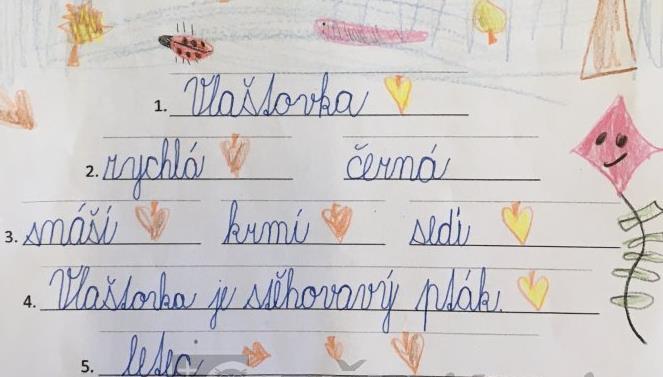 1. Vlaštovka
2. rychlá černá
3. snáší krmí sedí
4. Vlaštovka je stěhovavý pták.
5. letec